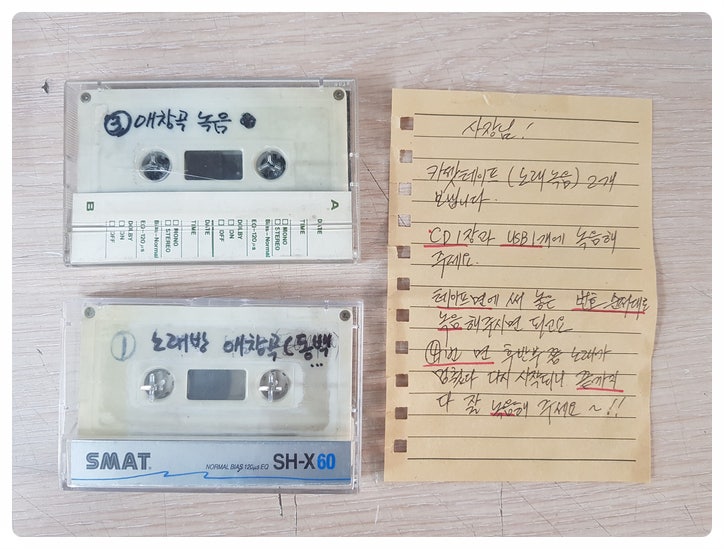 ③ 애창곡 녹음
B
A
DATE
TIME
□ MONO
□ STEREO
Bias-Normal
EQ-120μs
DOLBY
□ ON
□ OFF
DATE
TIME
□ MONO
□ STEREO
Bias-Normal
EQ-120μs
DOLBY
□ ON
□ OFF
① 노래방 애창곡(동백
...
SMAT
NORMAL BIAS 120μs EQ SH-X60
사장님!
카셋테이프(노래녹음) 2개
보냅니다.
CD 1장과 USB 1개에 녹음해
주세요.
테이프면에 써 놓은 번호 순서대로
녹음해주시면 되고요
④번 면 후반부 쯤 노래가
멈췄다 다시 시작되니 끝까지
다 잘 녹음해 주세요~!!